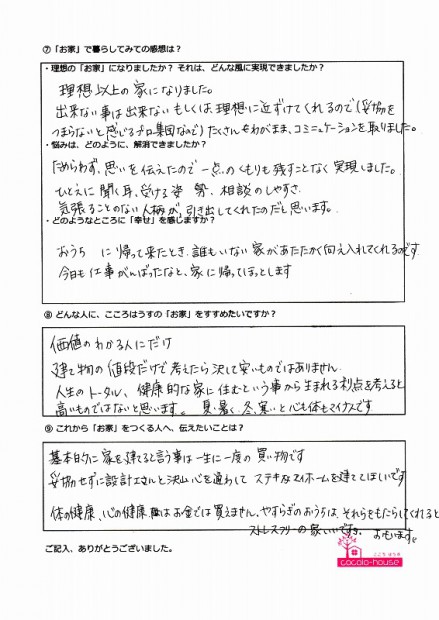 ⑦「お家」で暮らしてみての感想は？
・理想の「お家」になりましたか？それは、どんな風に実現できましたか？
理想以上の家になりました。
出来ない事は出来ないもしくは理想に近ずけてくれるので(妥協を
つまらないと感じるプロ集団なので)たくさんをわがまま、コミュニケーションを取りました。
・悩みは、どのように、解消できましたか？
ためらわず、思いを伝えたので一点のくもりも残すことなく実現しました。
ひとえに聞く耳、受ける姿勢、相談のしやすさ、
気張ることのない人柄が、引き出してくれたのだと思います。
・どのようなところに「幸せ」を感じますか？
おうちに帰って来たとき、誰もいない家があたたかく向え入れてくれるのです
今日も仕事がんばったなと、家に帰ってほっとします
⑧ どんな人に、こころはうすの「お家」をすすめたいですか？
価値のわかる人にだけ
建て物の値段だけで考えたら決して安いものではありません
人生のトータル、健康的な家に住むという事から生まれる利点を考えると
高いものではないと思います。夏、暑く、冬、寒いと心も体もマイナスです
⑨ これから「お家」をつくる人へ、伝えたいことは？
基本的に家を建てると言う事は一生に一度の買い物です
妥協せずに設計士さんと沢山心を通わしてステキなマイホームを建ててほしいです
体の健康、心の健康はお金では買えません、やすらぎのおうちは、それらをもたらしてくれると
ストレスフリーの家いいですネ。おもいます。
ご記入、ありがとうございました。
こころはうす
cocolo-house